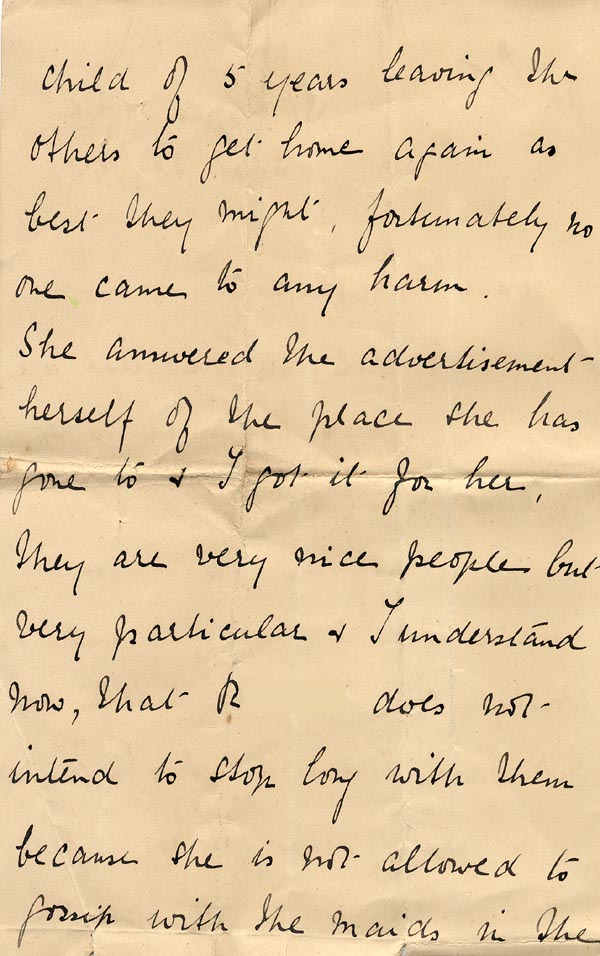 child of 5 years leaving the
others to get home again as
best they might, fortunately no
one came to any harm.
She answered the advertisement
herself of the place she has
gone to & I got it for her,
they are very nice people but
very particular & I understand
now, that R does not
intend to stop long with them
because she is not allowed to
gossip with the maids in the